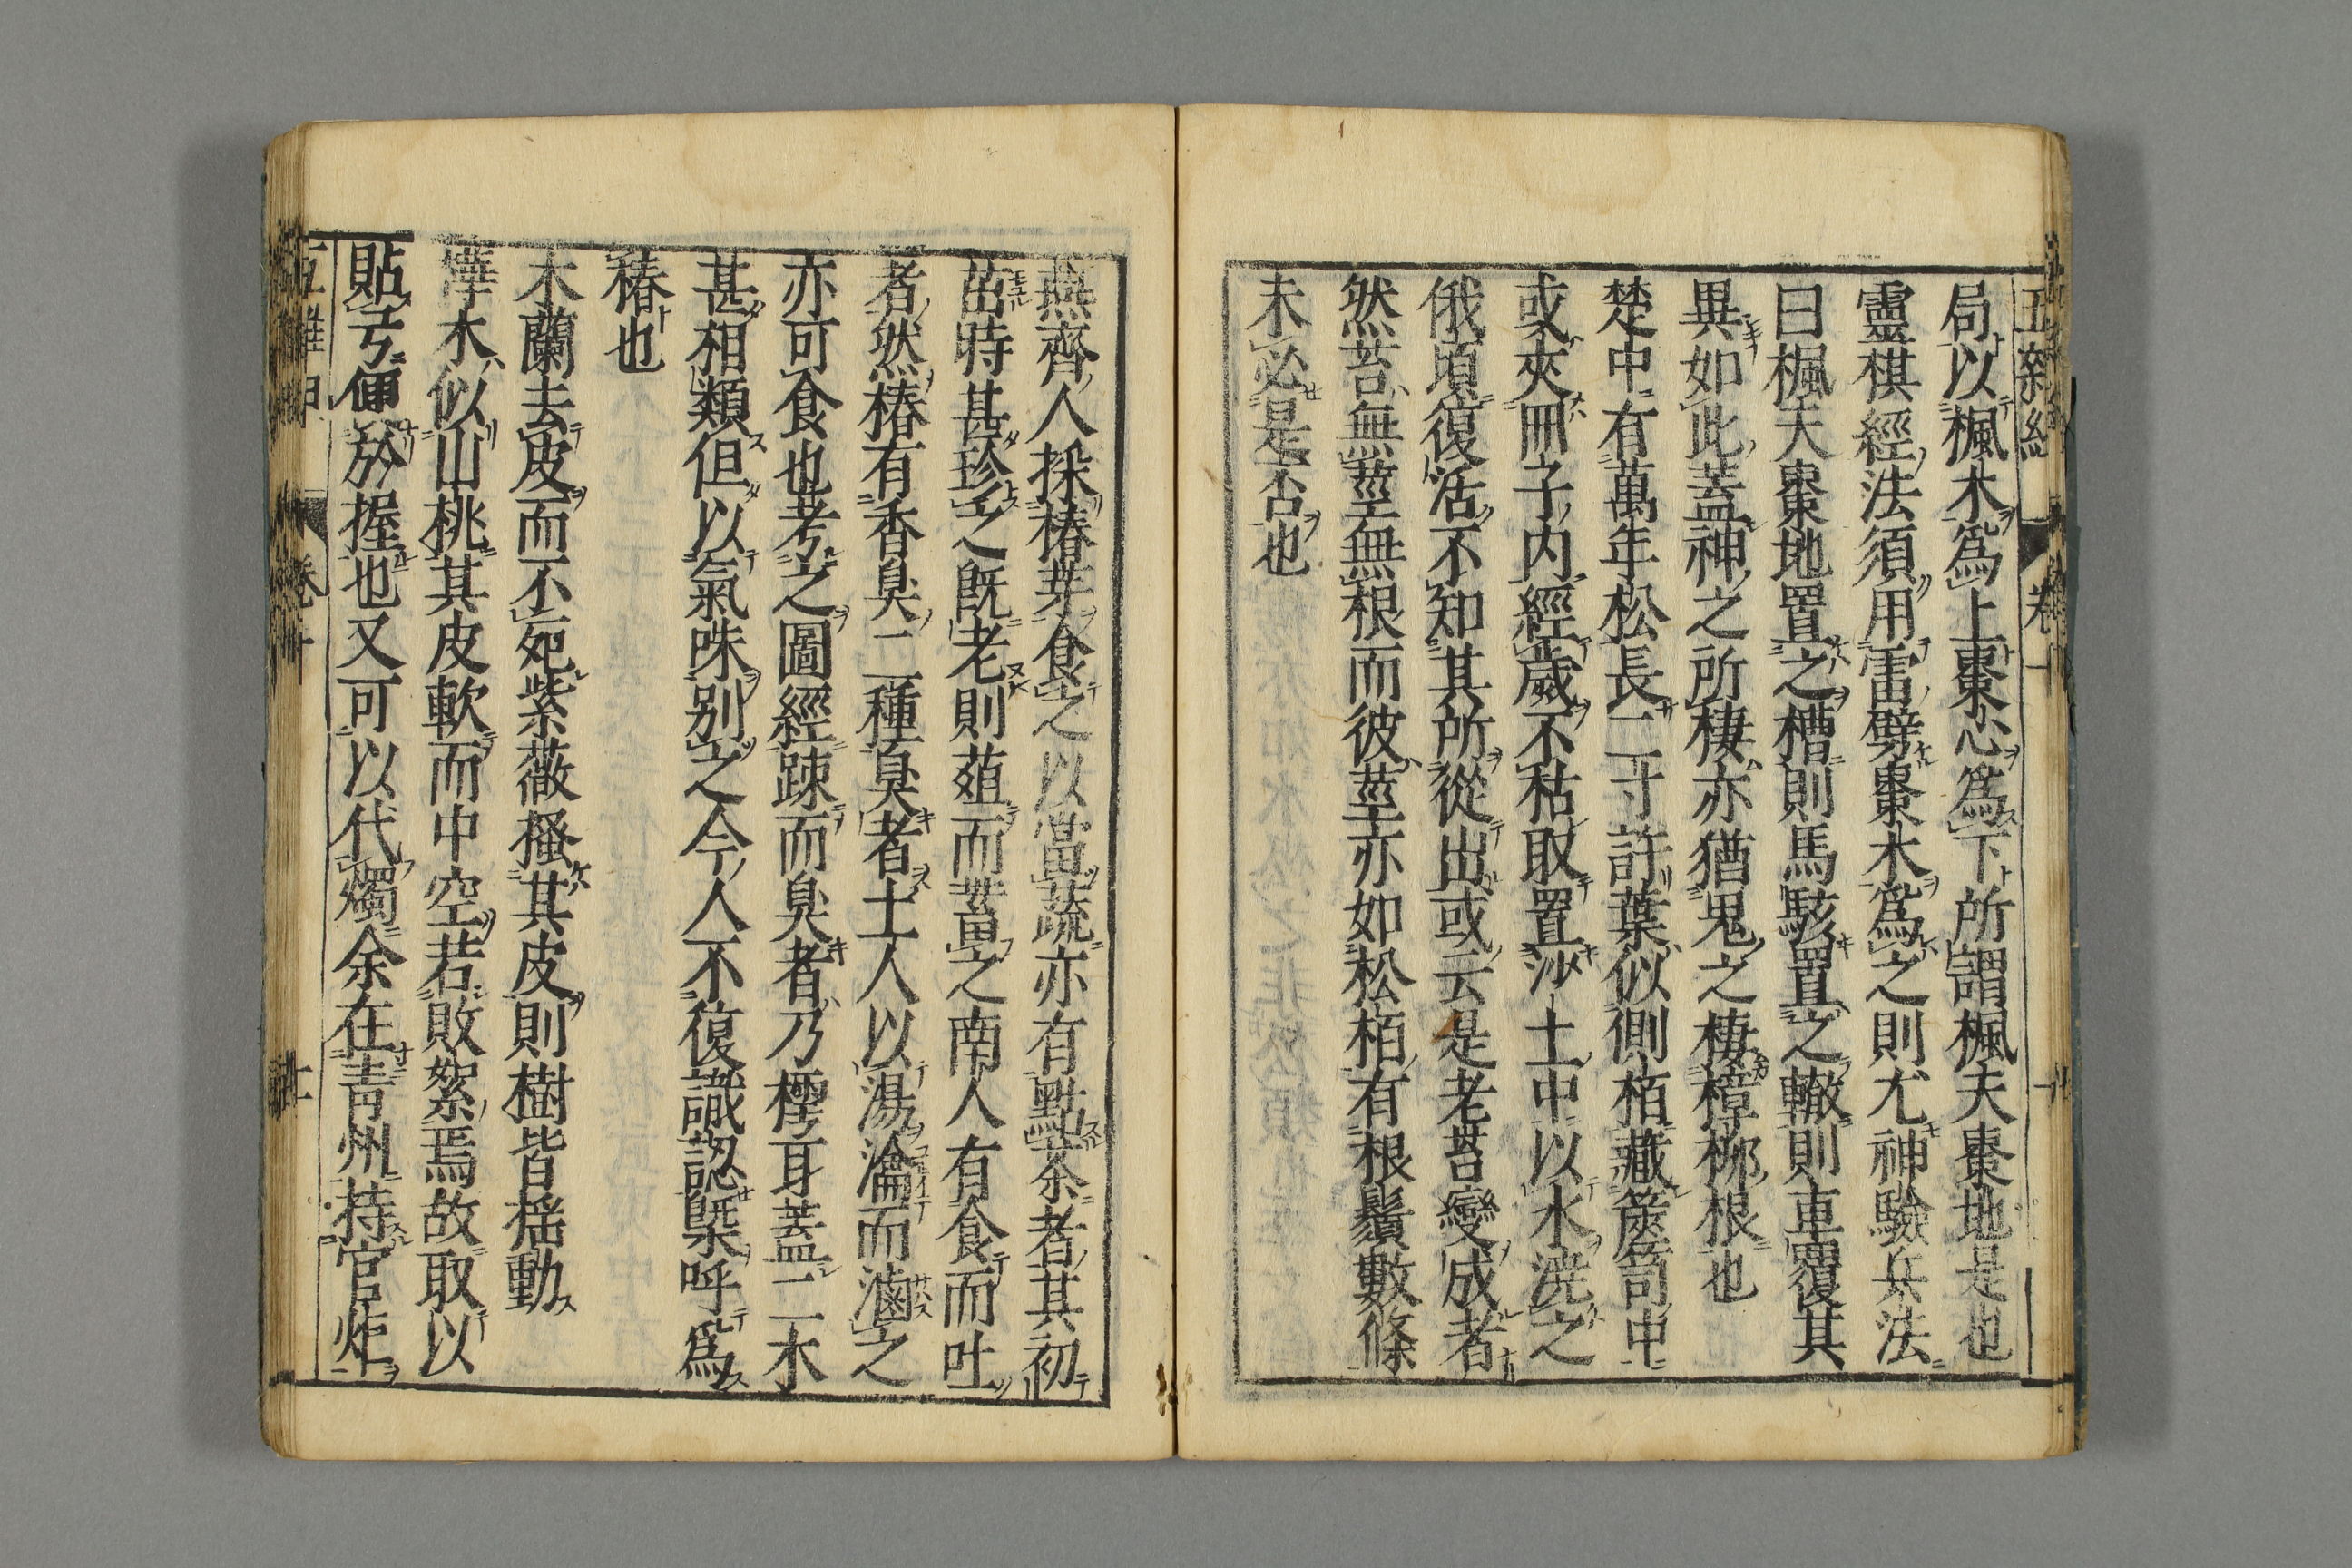 局以楓木爲上棗心爲下所謂楓天棗地是也
靈棋經法須用雷劈棗木爲之則尤神驗兵法
曰楓天棗地置之槽則馬駭置之轍則車覆其
異如此蓋神之所棲亦猶鬼之棲樟柳根也
楚中有萬年松長二寸許葉似側栢藏篋笥中
或夾冊子內經歲不枯取置沙土中以水澆之
俄頃復活不知其所從出或云是老苔變成者
然苔無莖無根而彼莖亦如松栢有根鬚數條
未必是否也
燕齊人採椿芽食之以當蔬亦有點茶者其初
茁時甚珍之既老則菹而蓄之南人有食而吐
者然椿有香臭二種臭者土人以湯瀹而滷之
亦可食也考之圖經疎而臭者乃樗耳蓋二木
甚相類但以氣味別之今人不復識認槩呼爲
椿也
木蘭去皮而不死紫薇搔其皮則樹皆搖動
樺木似山桃其皮軟而中空若敗絮焉故取以
貼弓便於握也又可以代燭余在青州持官炬